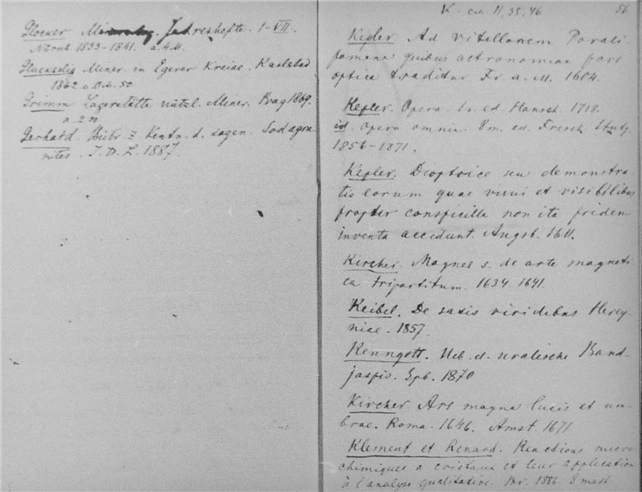 Glocker Mineralog. Jahreshefte. 1-VII.
Nürnb. 1833-1841. a 4.M.
Gluckselig Miner. im Egerer Kreise. Karlsbad
1862
Grimm Lagerstätte nützl. Miner. Prag 1869.
Gerhard. Beitr. z Kentn. d. sogen. Sodagra
nites. I.D.L. 1887.
K. 11, 35, 46
56
Kepler Ad Vitellionem Parali-
pomena quibus astronomiae pars
optica traditur. Fr. a. M. 1604.
Kepler. Opera. ed. Hansch. 1718.
id. opera omnia. 8m. ed. Frisch Stutg.
1856-1871.
Kepler. Dioptrice seu demonstra-
tio eorum quae visui et visibilibus
propter conspicilla non ita pridem
inventa accidunt. Augst. 1611.
Kircher. Magnes s. de arte magneti-
ca tripartitum. 1634. 1641.
Keibel. De saxis viridibus Hercy-
niae. 1857.
Kenngott. Ueb. d. uralische Band-
jaspis. Spb. 1870
Kircher. Ars magna lucis et um-
brae. Roma. 1646. Amst 1671
Klement et Renard. Reactions micro-
chimiques a cristaux et leur application
à l'analyse qualitative. Br. 1886. 8